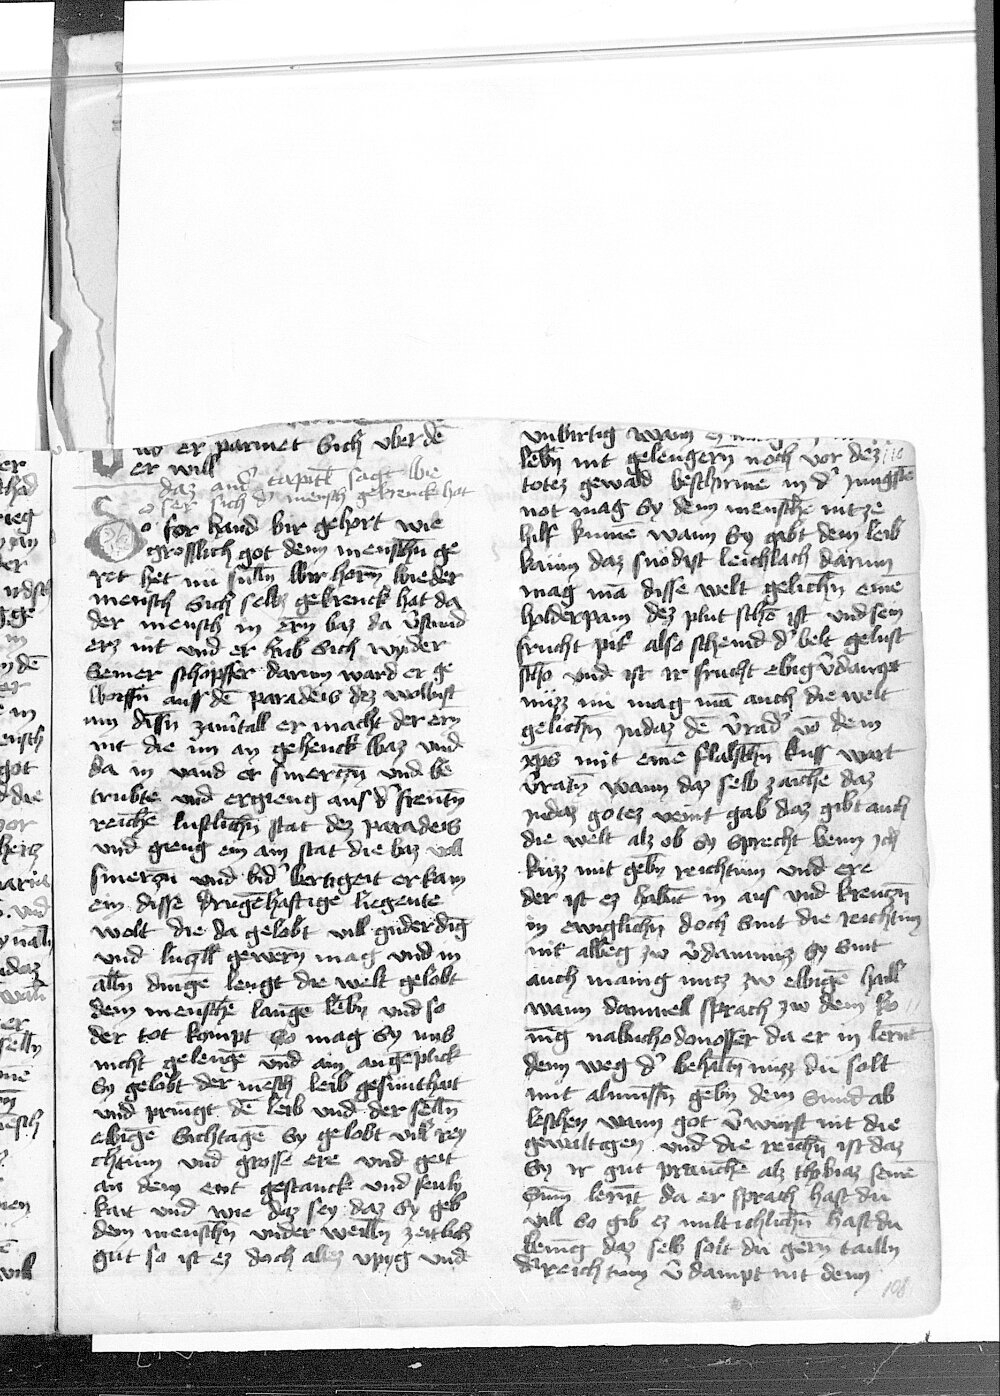 wo er parmet sich uber dē
er will
daz and' capitl sagt wie
ser sich d' mensch gekrenck hat
for hand bir gehort wie
grosslich got dem menschñ ge
ret het nü sulln wir horn wie der
mensch sich selbs gekrenck hat da
der mensch in ern baz da v̄stund
erz nit und er hub sich wyder
seiner schopffer darum ward er ge
worffn auss dē paradeis dez wolust
im disn zaertall er macht der ern
nit die im an gehenckt waz und
da in vand er smerczn und be
trubte und ergieng aus d' freutn
reichē lustlichn stat dez paradeis
und gieng ein am stat die baz voll
smerczn und bid' wertigeit er kam
ein disse drugēhaftige liegente
welt die da gelobt vill guter ding
und luczll gewern mag und in
alln dingē leugt die welt gelobt
dem menschē langē lebn und so
der tot kompt so mag sy uns
nicht gelengē und ain augēplick
sy gelobt der mēsch leib gesunthait
und pringt dē leib und der selln
ebigē sichtagē sy gelobt vill rey
chtum und grosse ere und geit
an dem ent gestanck und feul
kait und wie daz sey daz sy geb
dem menschn under weilln zeitlich
gut so ist ez doch allez upig und
unbirtig wann ez
lebn nit gelengern noch vor dez
totez gewald beschirmē in d' jungstē
not mag sy dem menschē nit ze
hilf kumē wann sy gibt dem leib
kaum daz snodist leichlach darum
mag mā disse welt gelichn einē
holderpam dez plut schē ist und sein
frucht pitt' also scheind d' belt gelust
schō und ist ir frucht ebig v̄damp
nüzz nü mag mā auch die welt
gelichn judaz dē v̄rad' vō dem
xp̄s mit einē flalschn kuss wart
v̄ratn wann daz selb zaichē daz
judaz gotez veint gab daz gibt auch
die welt alz ob sy sprecht wem ich
küzz mit gebn reichtum und ere
der ist ez habt in auf und kreuczn
in ewiglichn doch sint die reichtum
nit allbeg zw v̄damnüzz sy sint
auch manig nutz zw ebigē hall
wann daniell sprach zw dem ko
nig nabuchodonosser da er in lernt
dem weg d' behaltnüzz du solt
mit almussn gebn dein sund ab
leschen wann got v̄wurft nit die
gewaltigen und die reichn ist daz
sy ir gut prauchē alz thobiaz seinē
sun lernt da er sprach hast du
vill so gib ez miltichlichn hast du
benig daz selb solt du gern tailln
da reichtum v̄dampt nit dem
108